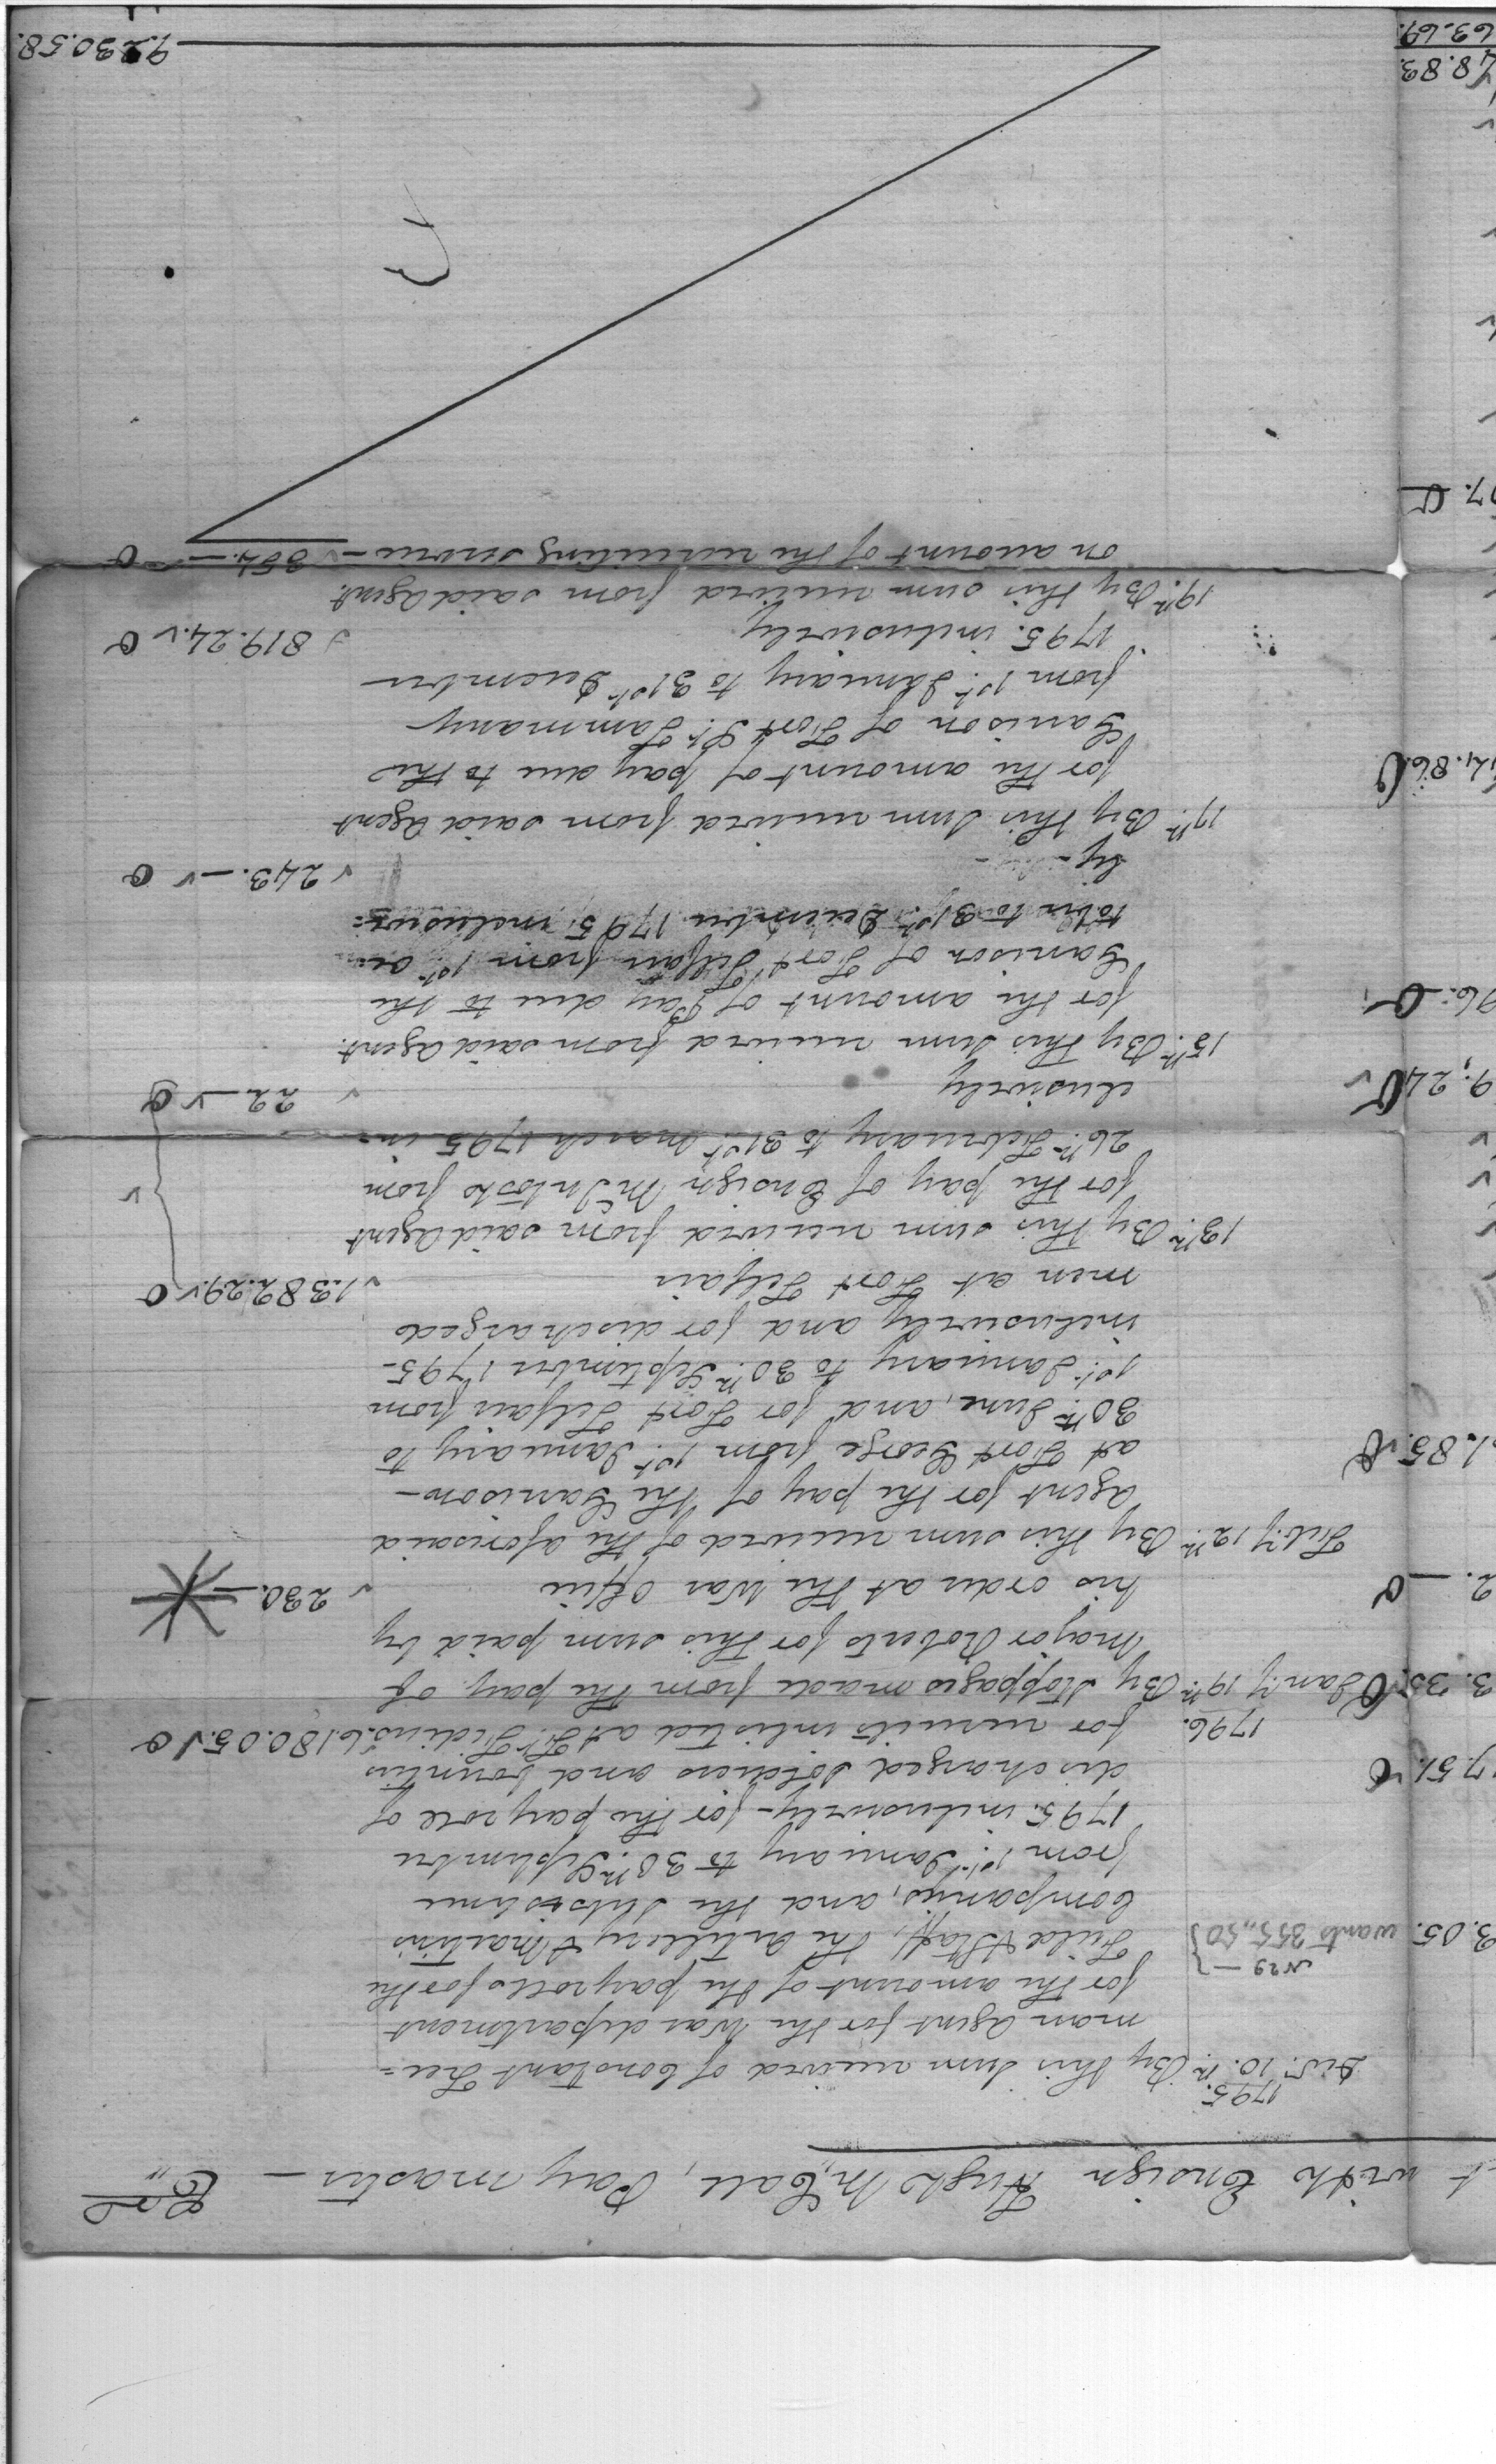 t with Ensign Hugh McCall, Pay master — Cr
1795.
Decr. 10th. By this sum received of Constant Free=
man agent for the War department
No 29 — for the amount of the payrolls for the
wants 355,,50 Field & Staff, the artillery & Martins
Companys, and the subsistance
from 1st. January to 30th. September
1795. inclusively — for the pay role of
discharged soldiers and bounties
for recruits inlisted at Ft. Fidius 6.180.05.
1796.
Jany. 19th. By stoppages made from the pay of
Major Roberts for this sum paid by
his order at the War Office 230. —
Feby 12th. By this sum received of the aforesaid
agent for the pay of the Garrison —
at Fort George from 1st. January to
30th. June, and for Fort Telfair from
1st. January to 30th. September 1795 —
inclusively and for discharged
men at Fort Telfair 1.382.29.
13th. By this sum received from said agent
for the pay of Ensign McIntosh from
26th. February to 31st. March 1795 in=
clusively 22 —
15th. By this sum received from said agent.
for the amount of Pay due to the
Garrison of Fort Telfair from 1st. Oc=
tober to 31st. December 1795, inclusive=
ly — 243. —
17th. By this sum received from said agent
for the amount of pay due to the
Garrison of Fort St. Tammany
from 1st. January to 31st. December —
1795. inclusively 819.24.
19th. By this sum received from said agent.
on account of the recruiting service — 354. —
9.230.58.
3.05.
7.51.
3.35
2. —
1.85.
9.24
96. —
4.86
07.
48.83
63.69.